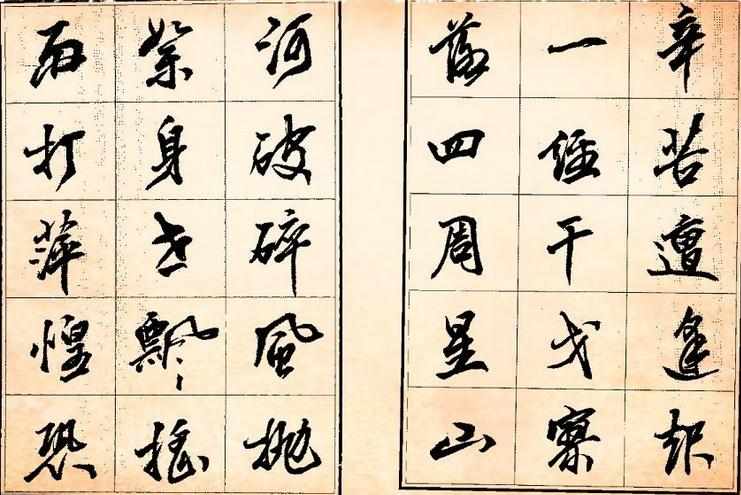 辛苦遭逢起
一經干戈寥
落四周星山
河破碎風抛
絮身世飄搖
雨打萍惶恐